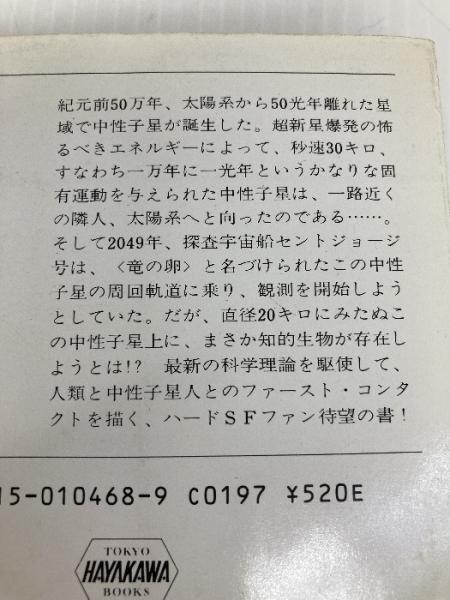 紀元前50万年、太陽系から50光年離れた星
域で中性子星が誕生した。超新星爆発の怖
るべきエネルギーによって、秒速30キロ、
すなわち一万年に一光年というかなりな固
有運動を与えられた中性子星は、一路近く
の隣人、太陽系へと向ったのである……。
そして2049年、探査宇宙船セントジョージ
号は、〈竜の卵〉と名づけられたこの中性
子星の周回軌道に乗り、観測を開始しよう
としていた。だが、直径20キロにみたぬこ
の中性子星上に、まさか知的生物が存在し
ようとは!? 最新の科学理論を駆使して、
人類と中性子星人とのファースト・コンタ
クトを描く、ハードSFファン待望の書！
15-010468-9 C0197 ¥520E
TOKYO
HAYAKAWA
BOOKS